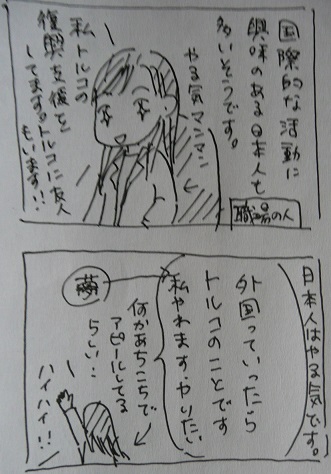 国際的な活動に
興味のある日本人も
多いそうです。
やる気マンマン
職場の人
私トルコの
復興支援を
してます。トルコに友人
もいます!!
日本人はやる気です。
外国っていったら
トルコのことです
私やれます・やりたい
何かあちこちで
アピールしてる
らしい…
ハイハイ!!